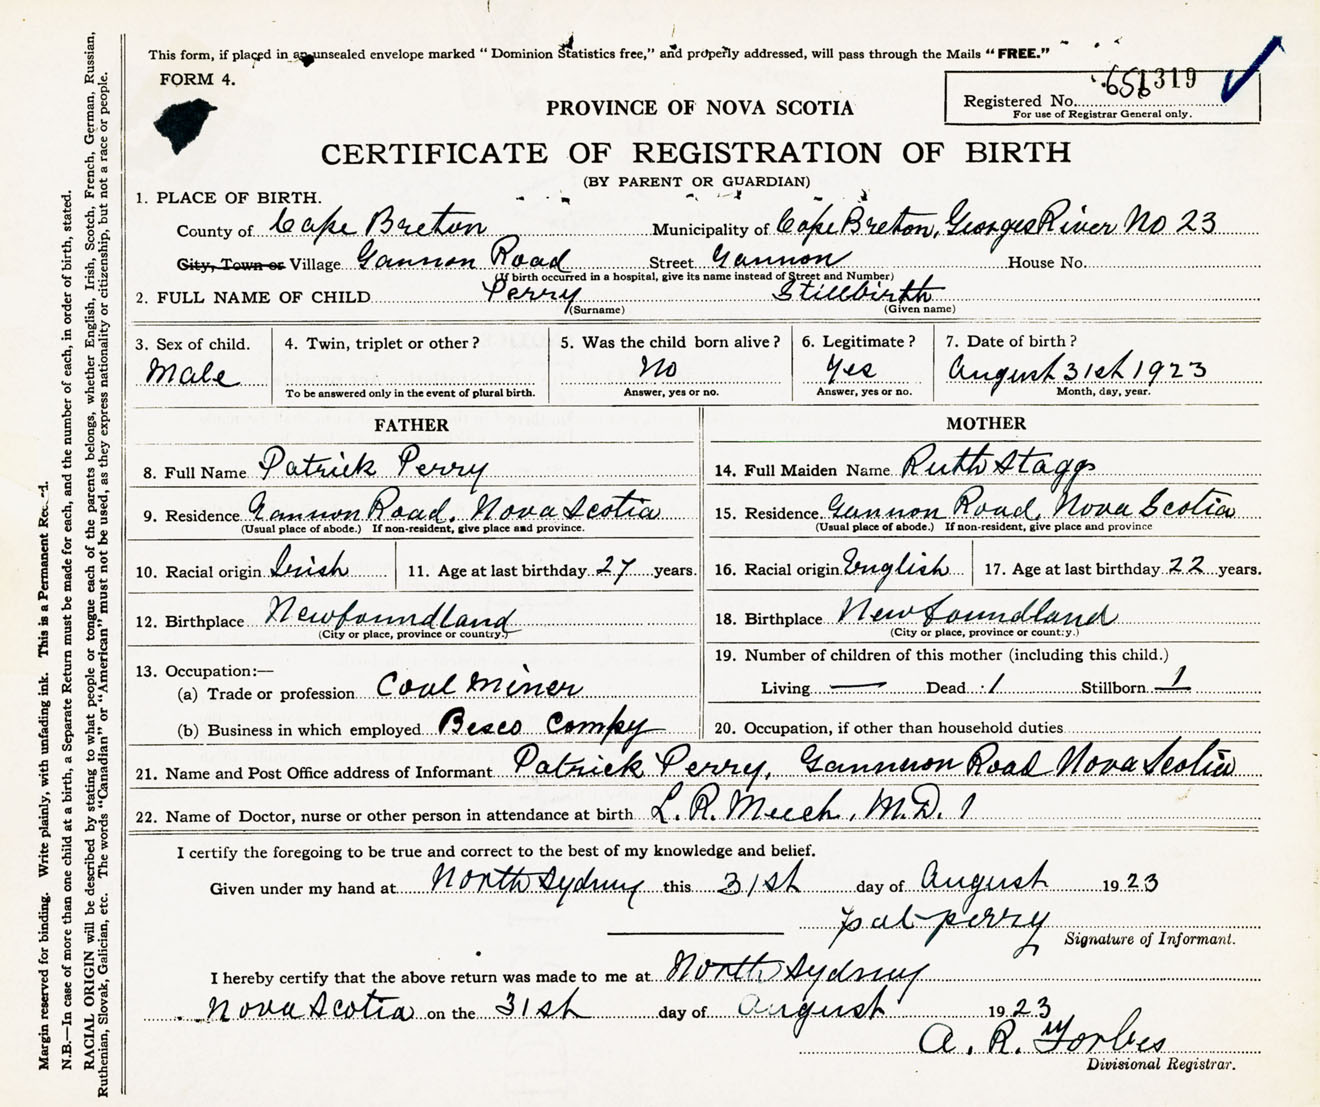 This form, if placed in an unsealed envelope marked “Dominion Statistics free,” and properly addressed, will pass through the Mails “FREE.”
FORM 4.
Registered No. 319
For use of Registrar General only.
PROVINCE OF NOVA SCOTIA
CERTIFICATE OF REGISTRATION OF BIRTH
(BY PARENT OR GUARDIAN)
1. PLACE OF BIRTH.
County of Cape Breton Municipality of Cape Breton, Georges River No 23
City, Town or Village Gannon Road Street Gannon House No.
(If birth occurred in a hospital, give its name instead of Street and Number)
2. FULL NAME OF CHILD Perry Stillbirth
(Surname) (Given name)
3. Sex of child. 4. Twin, triplet or other? 5. Was the child born alive? 6. Legitimate? 7. Date of birth?
Male No Yes August 31st 1923
To be answered only in the event of plural birth. Answer, yes or no. Answer, yes or no. Month, day, year.
FATHER MOTHER
8. Full Name Patrick Perry 14. Full Maiden Name Ruth Staggs
9. Residence Gannon Road, Nova Scotia 15. Residence Gannon Road, Nova Scotia
(Usual place of abode.) If non-resident, give place and province. (Usual place of abode.) If non-resident, give place and province
10. Racial origin Irish 11. Age at last birthday 27 years. 16. Racial origin English 17. Age at last birthday 22 years.
12. Birthplace Newfoundland 18. Birthplace Newfoundland
(City or place, province or country.) (City or place, province or country.)
13. Occupation:— 19. Number of children of this mother (including this child.)
(a) Trade or profession Coal Miner Living — Dead 1 Stillborn 1
(b) Business in which employed Besco Compy 20. Occupation, if other than household duties
21. Name and Post Office address of Informant Patrick Perry, Gannon Road Nova Scotia
22. Name of Doctor, nurse or other person in attendance at birth L. R. Meech, M.D. 1
I certify the foregoing to be true and correct to the best of my knowledge and belief.
Given under my hand at North Sydney this 31st day of August 1923
pat perry
Signature of Informant.
I hereby certify that the above return was made to me at North Sydney
Nova Scotia on the 31st day of August 1923
A. R. Forbes
Divisional Registrar.
Margin reserved for binding. Write plainly, with unfading ink. This is a Permanent
N.B.—In case of more than one child at a birth, a Separate Return must be made for each, and the number of each, in order of birth, stated.
RACIAL ORIGIN will be described by stating to what people or tongue each of the parents belongs, whether English, Irish, Scotch, French, German, Russian,
Ruthenian, Slovak, Galician, etc. The words “Canadian” or “American” must not be used, as they express nationality or citizenship, but not a race or people.